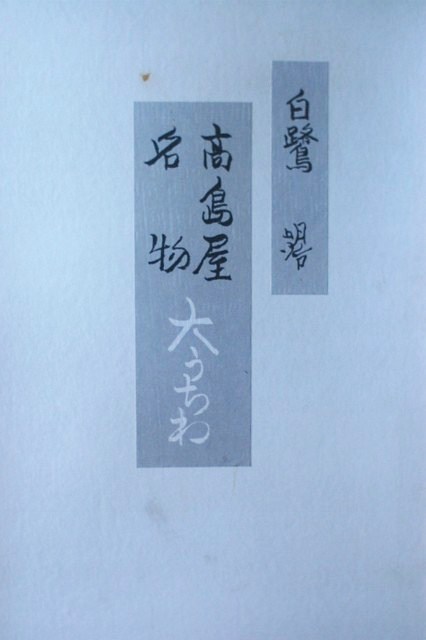 白鷺
高島屋
名物
大うちわ